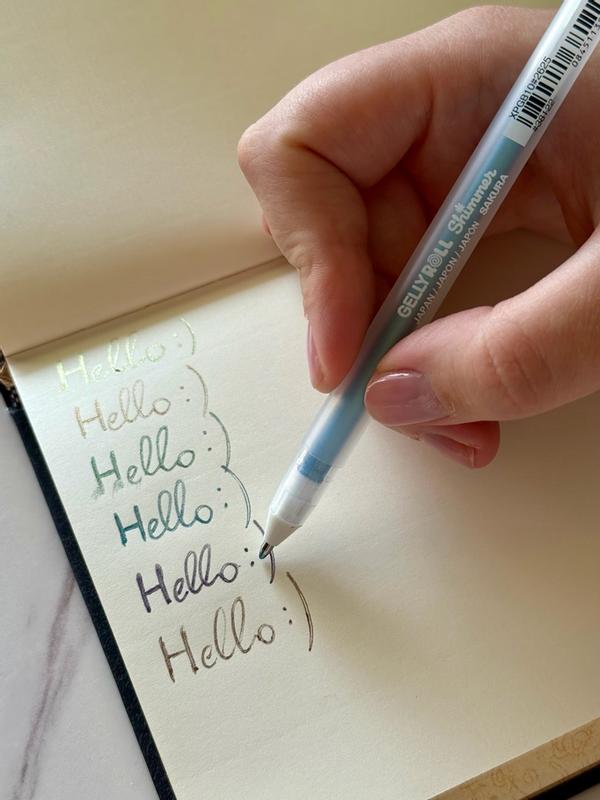 XPGB10#2625
#38132
GELLY ROLL Shimmer
JAPAN / JAPON / JAPON SAKURA
Hello :)
Hello :)
Hello :)
Hello :)
Hello :)
Hello :)